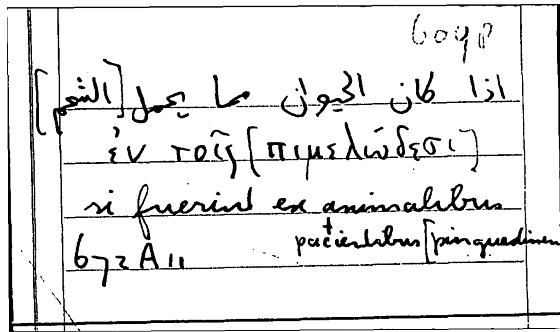 609P
اذا كان الحيوان مما يحمل [الشحم]
ἐν τοῖς [πιμελώδεσι]
si fuerint ex animalibus
patientibus [pinguedinem
672A11